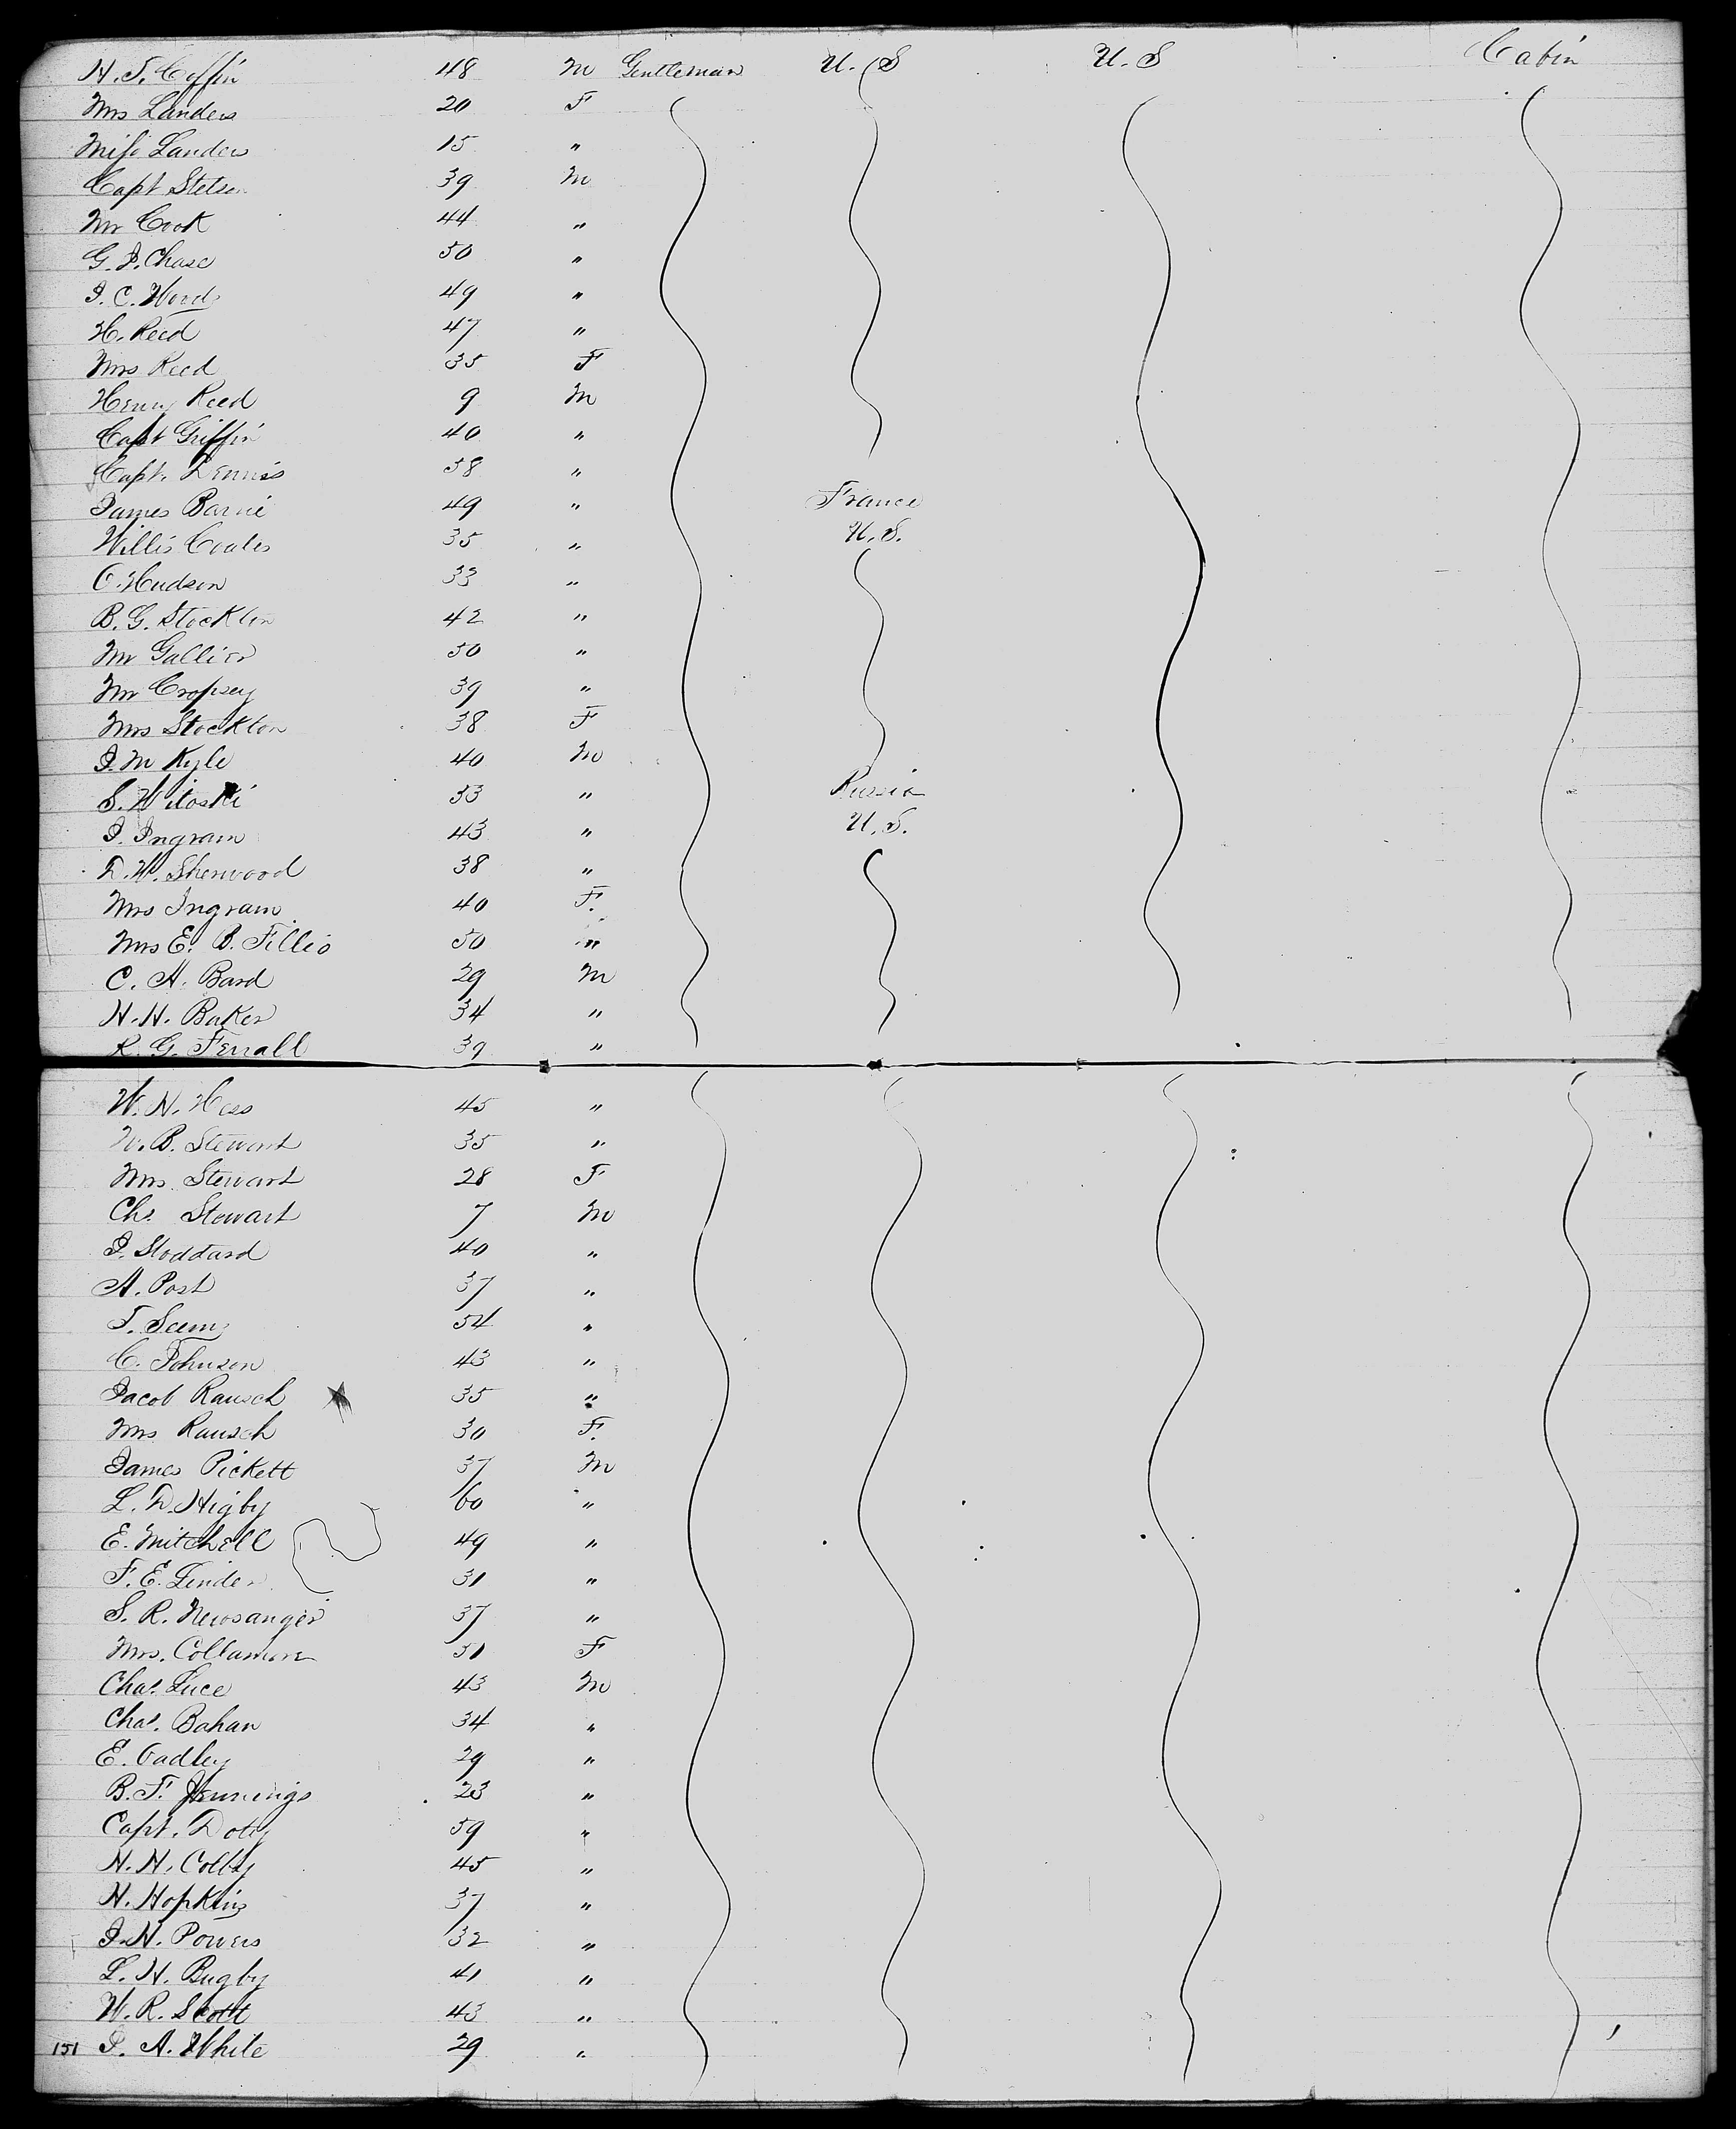 H. T. Coffin 48 M Gentleman U. S U. S Cabin
Mrs Landers 20 F
Miss Landers 15 "
Capt Stetson 39 M
Mr Cook 44 "
G. J. Chase 50 "
J. C. Word 49 "
H. Reed 47 "
Mrs Reed 35 F
Henry Reed 9 M
Capt Griffin 40 "
Capt. Dennis 38 "
James Barné 49 " France
Willis Coates 35 " U. S.
O. Hudson 33 "
B. G. Stockton 42 "
Mr Gallier 50 "
Mr Cropsey 39 "
Mrs Stockton 38 F
J. M Kyle 40 M
S. Witoski 33 " Russia
J. Ingram 43 " U. S.
D. W. Sherwood 38 "
Mrs Ingram 40 F.
Mrs E. B. Fillio 50 "
C. H. Bard 29 M
H. H. Baker 34 "
R. G. Ferrall 39 "
W. H. Hess 45 "
W. B. Stewart 35 "
Mrs Stewart 28 F
Chs. Stewart 7 M
J. Stoddard 40 "
A. Post 37 "
T. 54 "
C. Johnson 43 "
Jacob Rausch 35 "
Mrs Rausch 30 F.
James Pickett 37 M
L. D. Higby 60 "
E. Mitchell 49 "
F. E. Linder 31 "
S. R. Newsanger 37 "
Mrs. Collamore 51 F
Chas. Luce 43 M
Chas. Bahan 34 "
E. Oadley 29 "
B. F. Jennings 23 "
Capt. Doty 59 "
H. H. Colby 45 "
H. Hopkins 37 "
J. H. Powers 32 "
L. H. Bugby 41 "
W. R. Scott 43 "
151 J. A. White 29 "